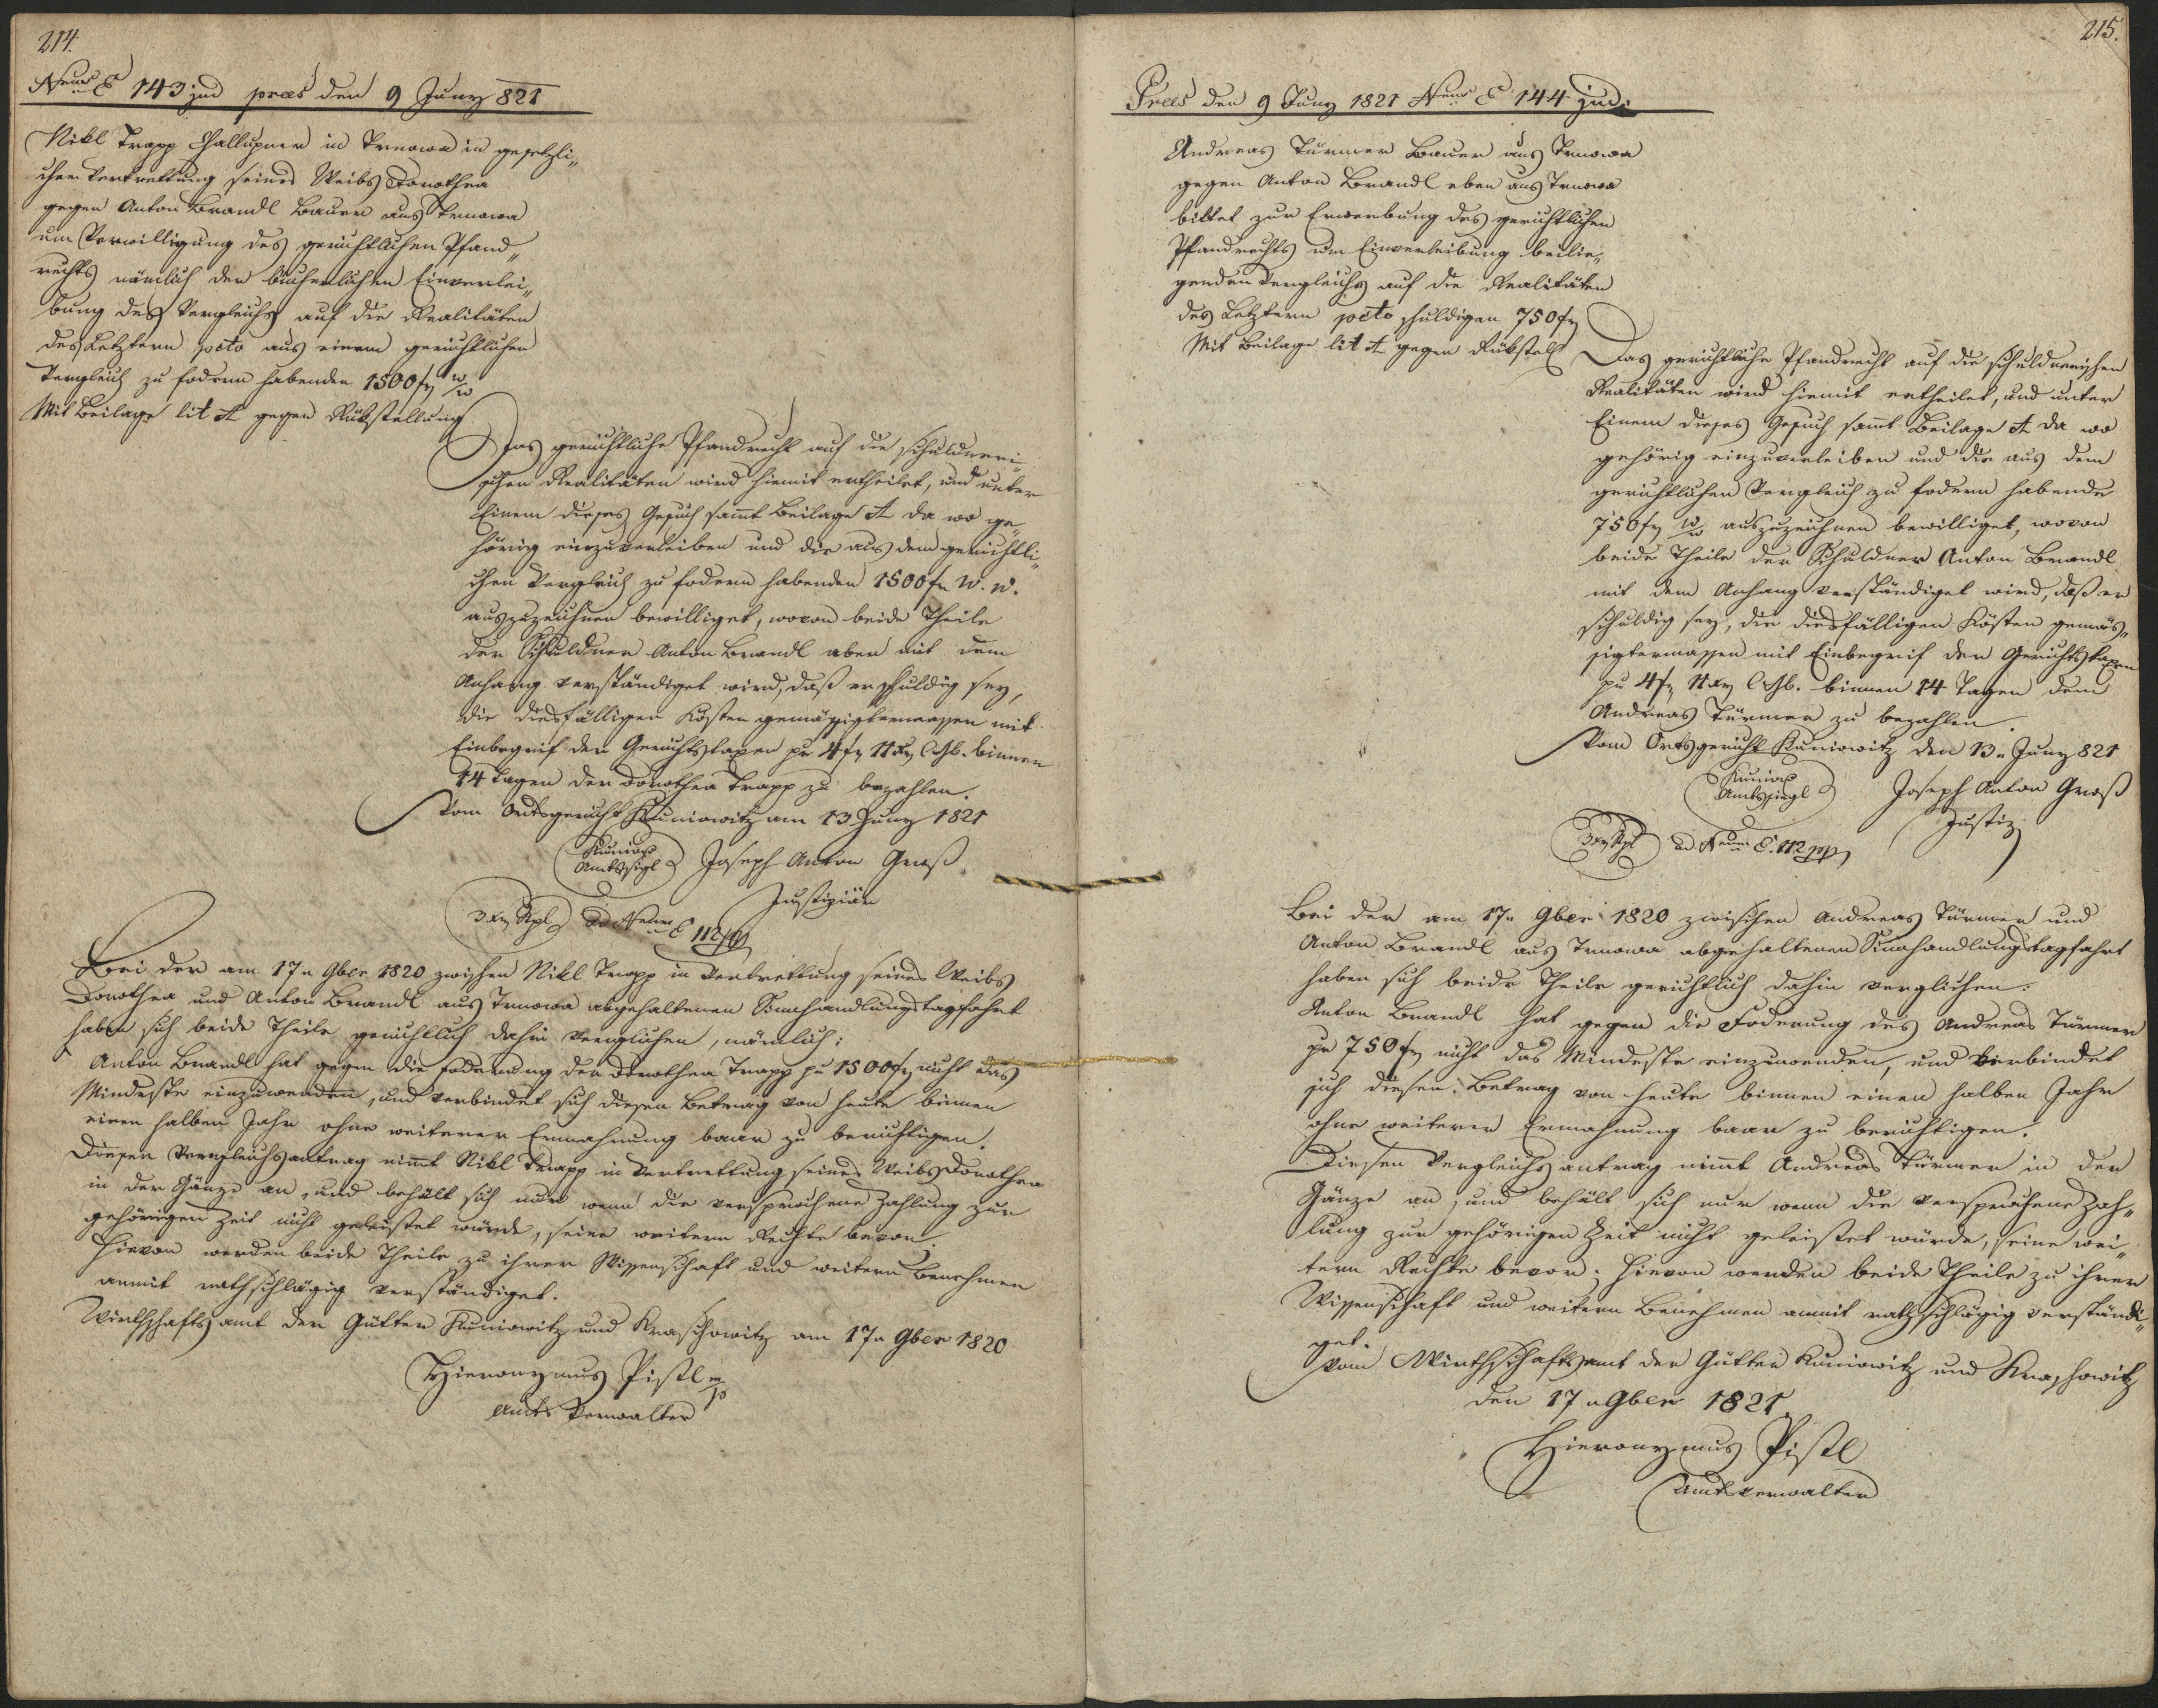 214.
Nrus E 143 jud praes den 9 Juny 821
Nikl Trapp Challupner in Trnowa in gesetzli„
cher Vertrettung seines Weibs Dorothea
gegen Anton Brandl Bauer aus Trnowa
um Verwilligung des gerichtlichen Pfand„
rechts nämlich der bücherlichen Einverlei„
bung des Vergleichs auf die Realitäten
des Letztern pcto aus einem gerichtlichen
Vergleich zu fodern habenden 1500 fr w/w
Mit Beilage lit A gegen Rükstellung
Das gerichtliche Pfandrecht auf die schuldneri„
schen Realitäten wird hiemit ertheilet, und unter
Einem dieses Gesuch samt Beilage A da wo ge„
hörig einzuverleiben und die aus dem gerichtli„
chen Vergleich zu fodern habenden 1500 fr W. W.
auszuzeichnen bewilliget, wovon beide Theile
der Schuldner Anton Brandl aber mit dem
Anhang verständiget wird, daß er schuldig sey,
die diesfälligen Kösten gemäßigtermassen mit
Einbegrif der Gerichtstaxen pr 4 fr 11 xr CMz. binnen
14 Tagen der Dorothea Trapp zu bezahlen.
Vom Ortsgericht Kuniowitz am 13 Juny 1821
Kuniow
Amtssigl
Joseph Anton Groß
Justiziär
3 xr Stpl
ad Nrum E 112 jud
Bei der am 17n 9ber 1820 zwischen Nikl Trapp in Vertrettung seines Weibs
Dorothea und Anton Brandl aus Trnowa abgehaltenen Einhandlungstagfahrt
haben sich beide Theile gerichtlich dahin verglichen, nämlich:
Anton Brandl hat gegen die Foderung der Dorothea Trapp pr 1500 fr nicht das
Mindeste einzuwenden, und verbindet sich diesen Betrag von heute binnen
einen halben Jahr ohne weiterer Ermahnung baar zu berichtigen.
Diesen Vergleichsantrag nimt Nikl Trapp in Vertrettung seines Weibs Dorothea
in der Gänze an, und behält sich nur wenn die versprochene Zahlung zur
gehörigen Zeit nicht geleistet würde, seine weitern Rechte bevor.
Hievon werden beide Theile zu ihrer Wissenschaft und weitern Benehmen
anmit rathschlägig verständiget.
Wirthschaftsamt der Gütter Kuniowitz und Kraschowitz am 17n 9ber 1820
Hieronymus Pistl m/p
Amts Verwalter
215.
Praes den 9 Juny 1821 Nrus E 144 jud:
Andreas Türmer Bauer aus Trnowa
gegen Anton Brandl eben aus Trnowa
bittet zur Erwerbung des gerichtlichen
Pfandrechts um Einverleibung beilie„
genden Vergleichs auf die Realitäten
des Letztern pcto schuldigen 750 fr
Mit Beilage lit A gegen Rükstell
Das gerichtliche Pfandrecht auf die schuldnerischen
Realitäten wird hiemit ertheilet, und unter
Einem dieses Gesuch samt Beilage A da wo
gehörig einzuverleiben und die aus dem
gerichtlichen Vergleich zu fodern habende
750 fr w/w auszuzeichnen bewilliget, wovon
beide Theile der Schuldner Anton Brandl
mit dem Anhang verständiget wird, daß er
schuldig sey, die diesfälligen Kösten gemäs„
sigtermassen mit Einbegrif der Gerichtstaxen
pr 4 fr 11 xr CMz. binnen 14 Tagen dem
Andreas Türmer zu bezahlen
Vom Ortsgericht Kuniowitz den 13n Juny 821
Kuniow
Amtssiegl
Joseph Anton Groß
Justiz
3 xr Stpl
ad Nrum E. 112 jud
Bei der am 17n 9ber 1820 zwischen Andreas Türmer und
Anton Brandl aus Trnowa abgehaltenen Einhandlungstagfahrt
haben sich beide Theile gerichtlich dahin verglichen:
Anton Brandl hat gegen die Foderung des Andreas Türmer
pr 750 fr nicht das Mindeste einzuwenden, und verbindet
sich diesen Betrag von heute binnen einen halben Jahr
ohne weiterer Ermahnung baar zu berichtigen.
Diesen Vergleichsantrag nimt Andreas Türmer in der
Gänze an, und behält sich nur wenn die versprochene Zah„
lung zur gehörigen Zeit nicht geleistet würde, seine wei„
tern Rechte bevor; hievon werden beide Theile zu ihrer
Wissenschaft und weitern Benehmen anmit rathschlägig verständi„
get.
Vom Wirthschaftsamt der Gütter Kuniowitz und Kraschowitz
den 17n 9ber 1821
Hieronymus Pistl
Amtsverwalter